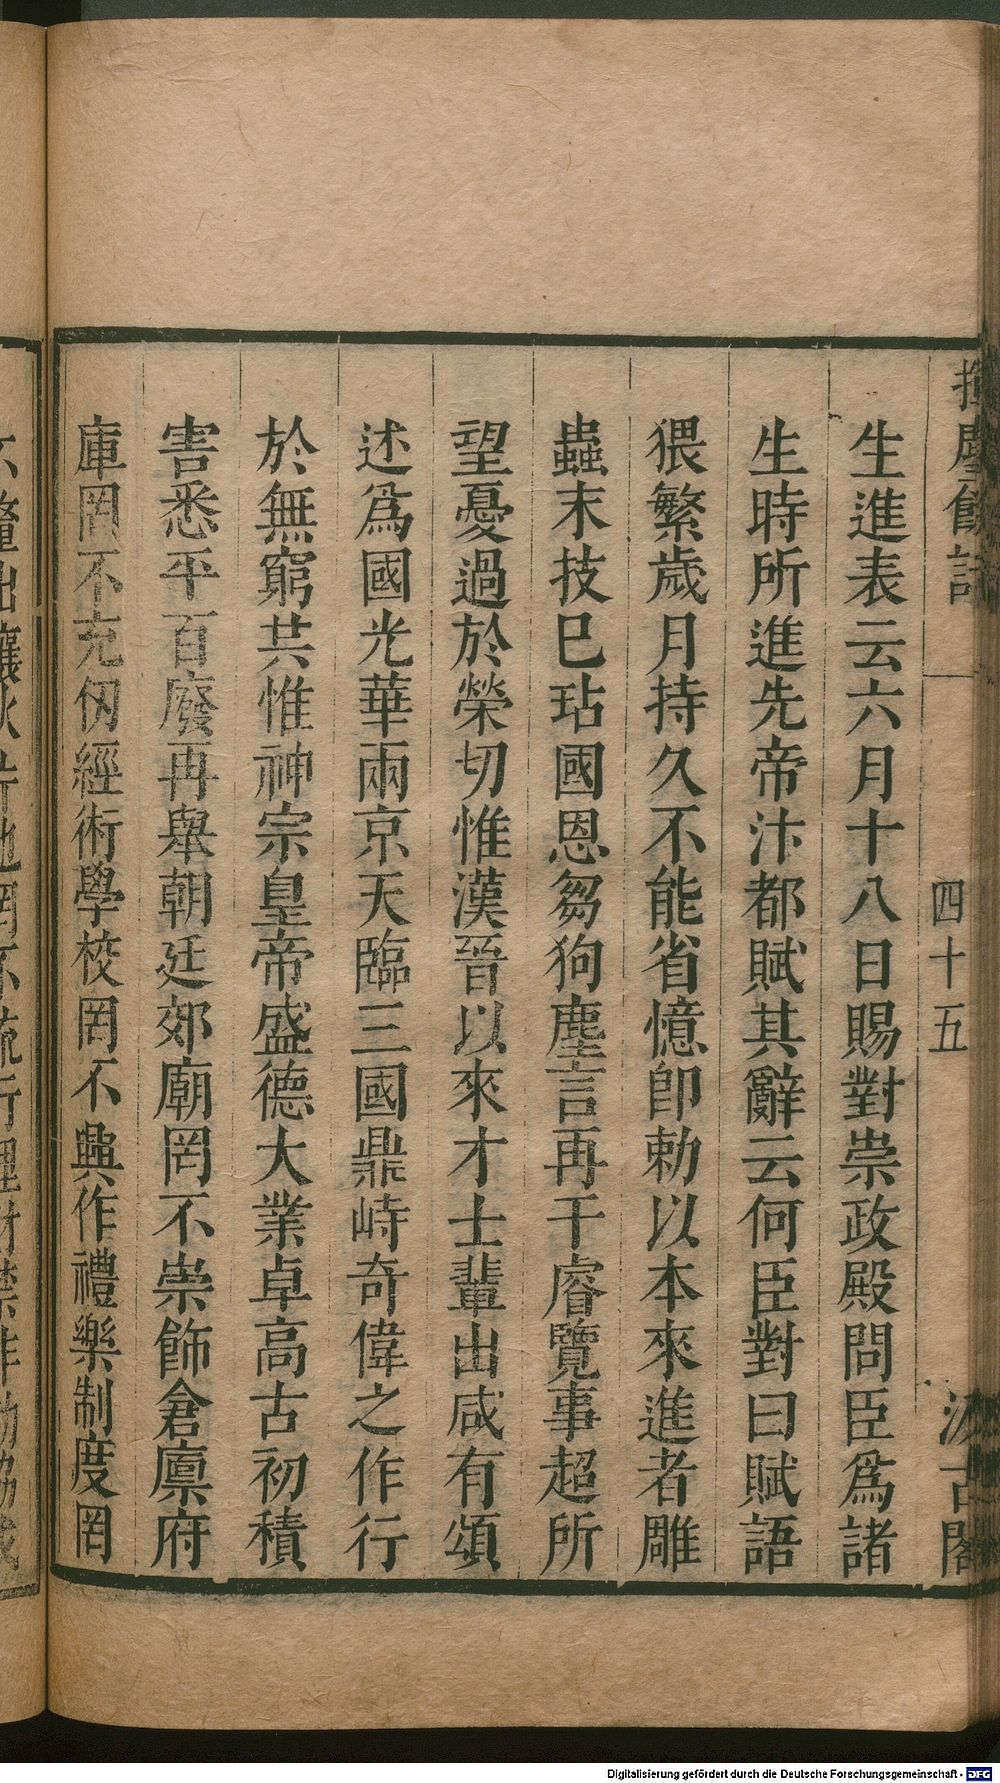 揮麈餘話
四十五
汲古閣
生進表云六月十八日賜對崇政殿問臣爲諸
生時所進先帝汴都賦其辭云何臣對曰賦語
猥繁歲月持久不能省憶卽勅以本來進者雕
蟲末技巳玷國恩芻狗塵言再干睿覽事超所
望憂過於榮切惟漢晉以來才士輩出咸有頌
述爲國光華兩京天臨三國鼎峙奇偉之作行
於無窮共惟神宗皇帝盛德大業卓高古初積
害悉平百廢再舉朝廷郊廟罔不崇飾倉廩府
庫罔不充仞經術學校罔不興作禮樂制度罔
Digitalisierung gefördert durch die Deutsche Forschungsgemeinschaft - DFG